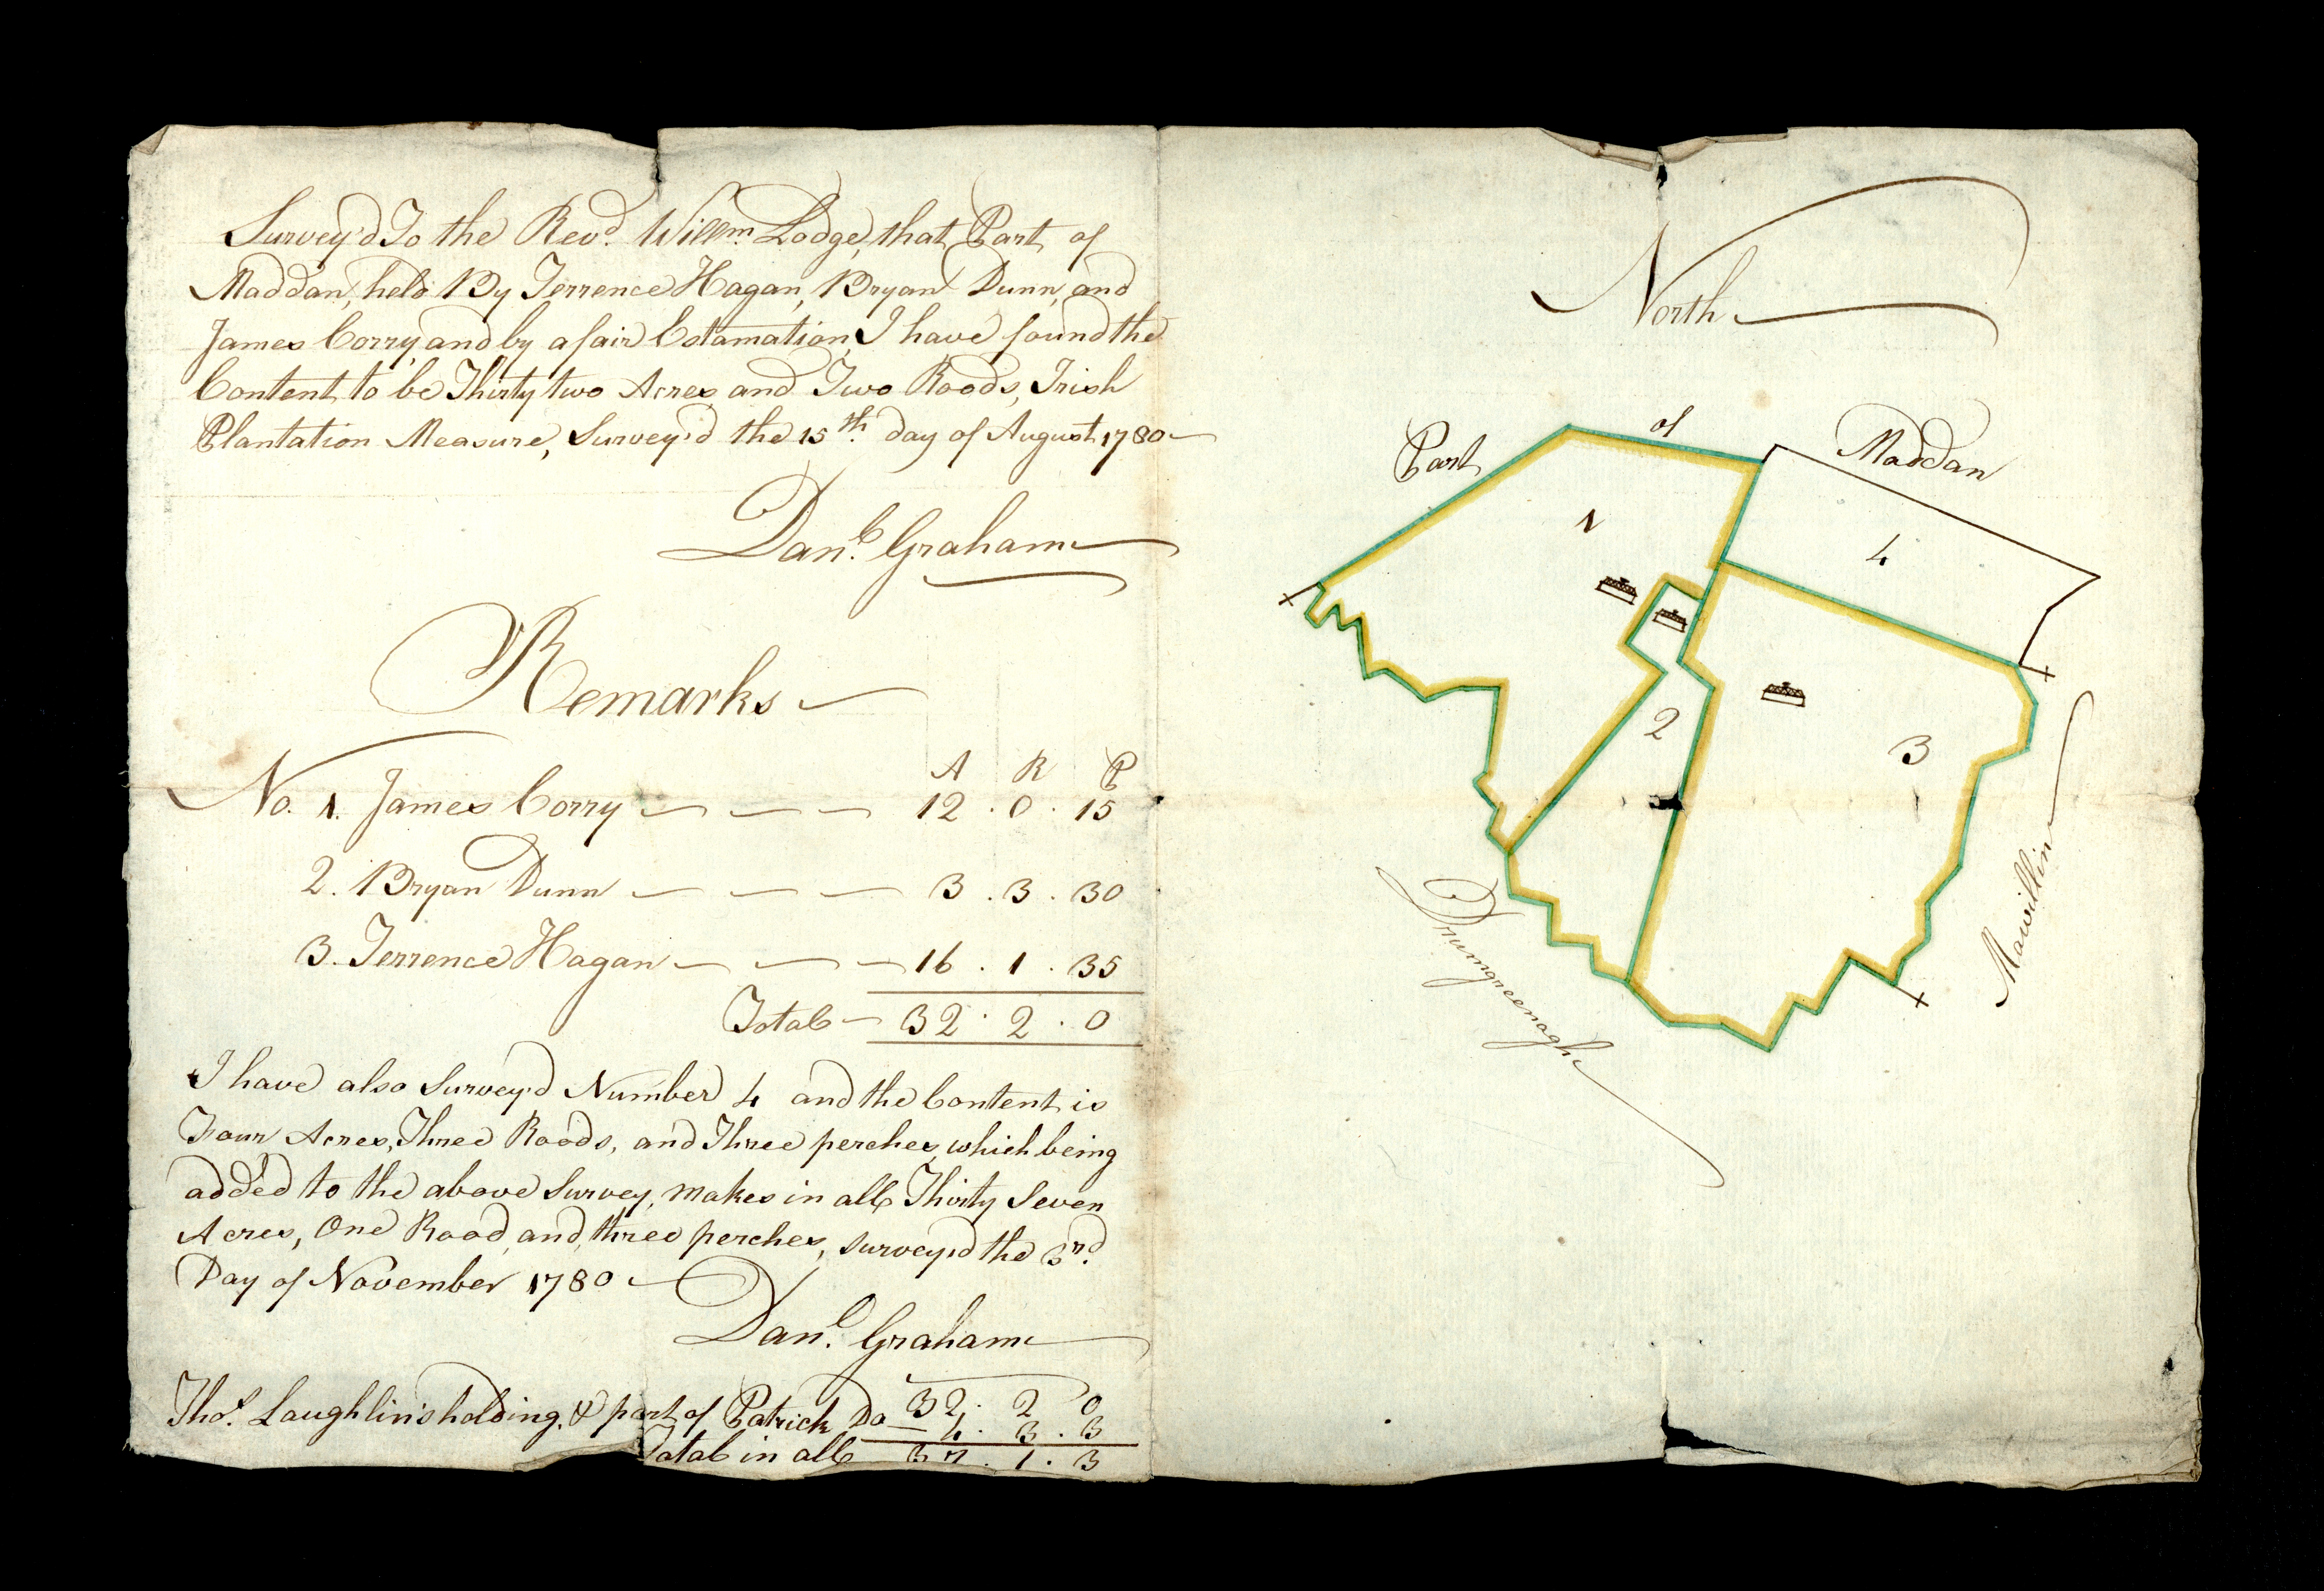 Survey'd To the Revd. Willm. Lodge, that Part of
Maddan, held By Terrence Hagan, Bryan Dunn, and
James Corry, and by a fair Estamation, I have found the
Content to be Thirty two Acres and Two Roods, Irish
Plantation Measure, Survey'd the 15th. day of August 1780
Danl. Graham
Remarks
A R P
No. 1. James Corry 12 . 0 . 15
2. Bryan Dunn 3 . 3 . 30
3. Terrence Hagan 16 . 1 . 35
Total 32 . 2 . 0
I have also Survey'd Number 4 and the Content is
Four Acres, Three Roods, and Three perches, which being
added to the above Survey, makes in all Thirty Seven
Acres, One Rood, and three perches, survey'd the 3rd.
Day of November 1780
Danl. Graham
32 . 2 0
Thos. Laughlin's holding, & part of Patrick Do 4 . 3 . 3
Total in all 37 . 1 . 3
North
Part of Maddan
1
4
2
3
Drumgreenagh
Mawillin